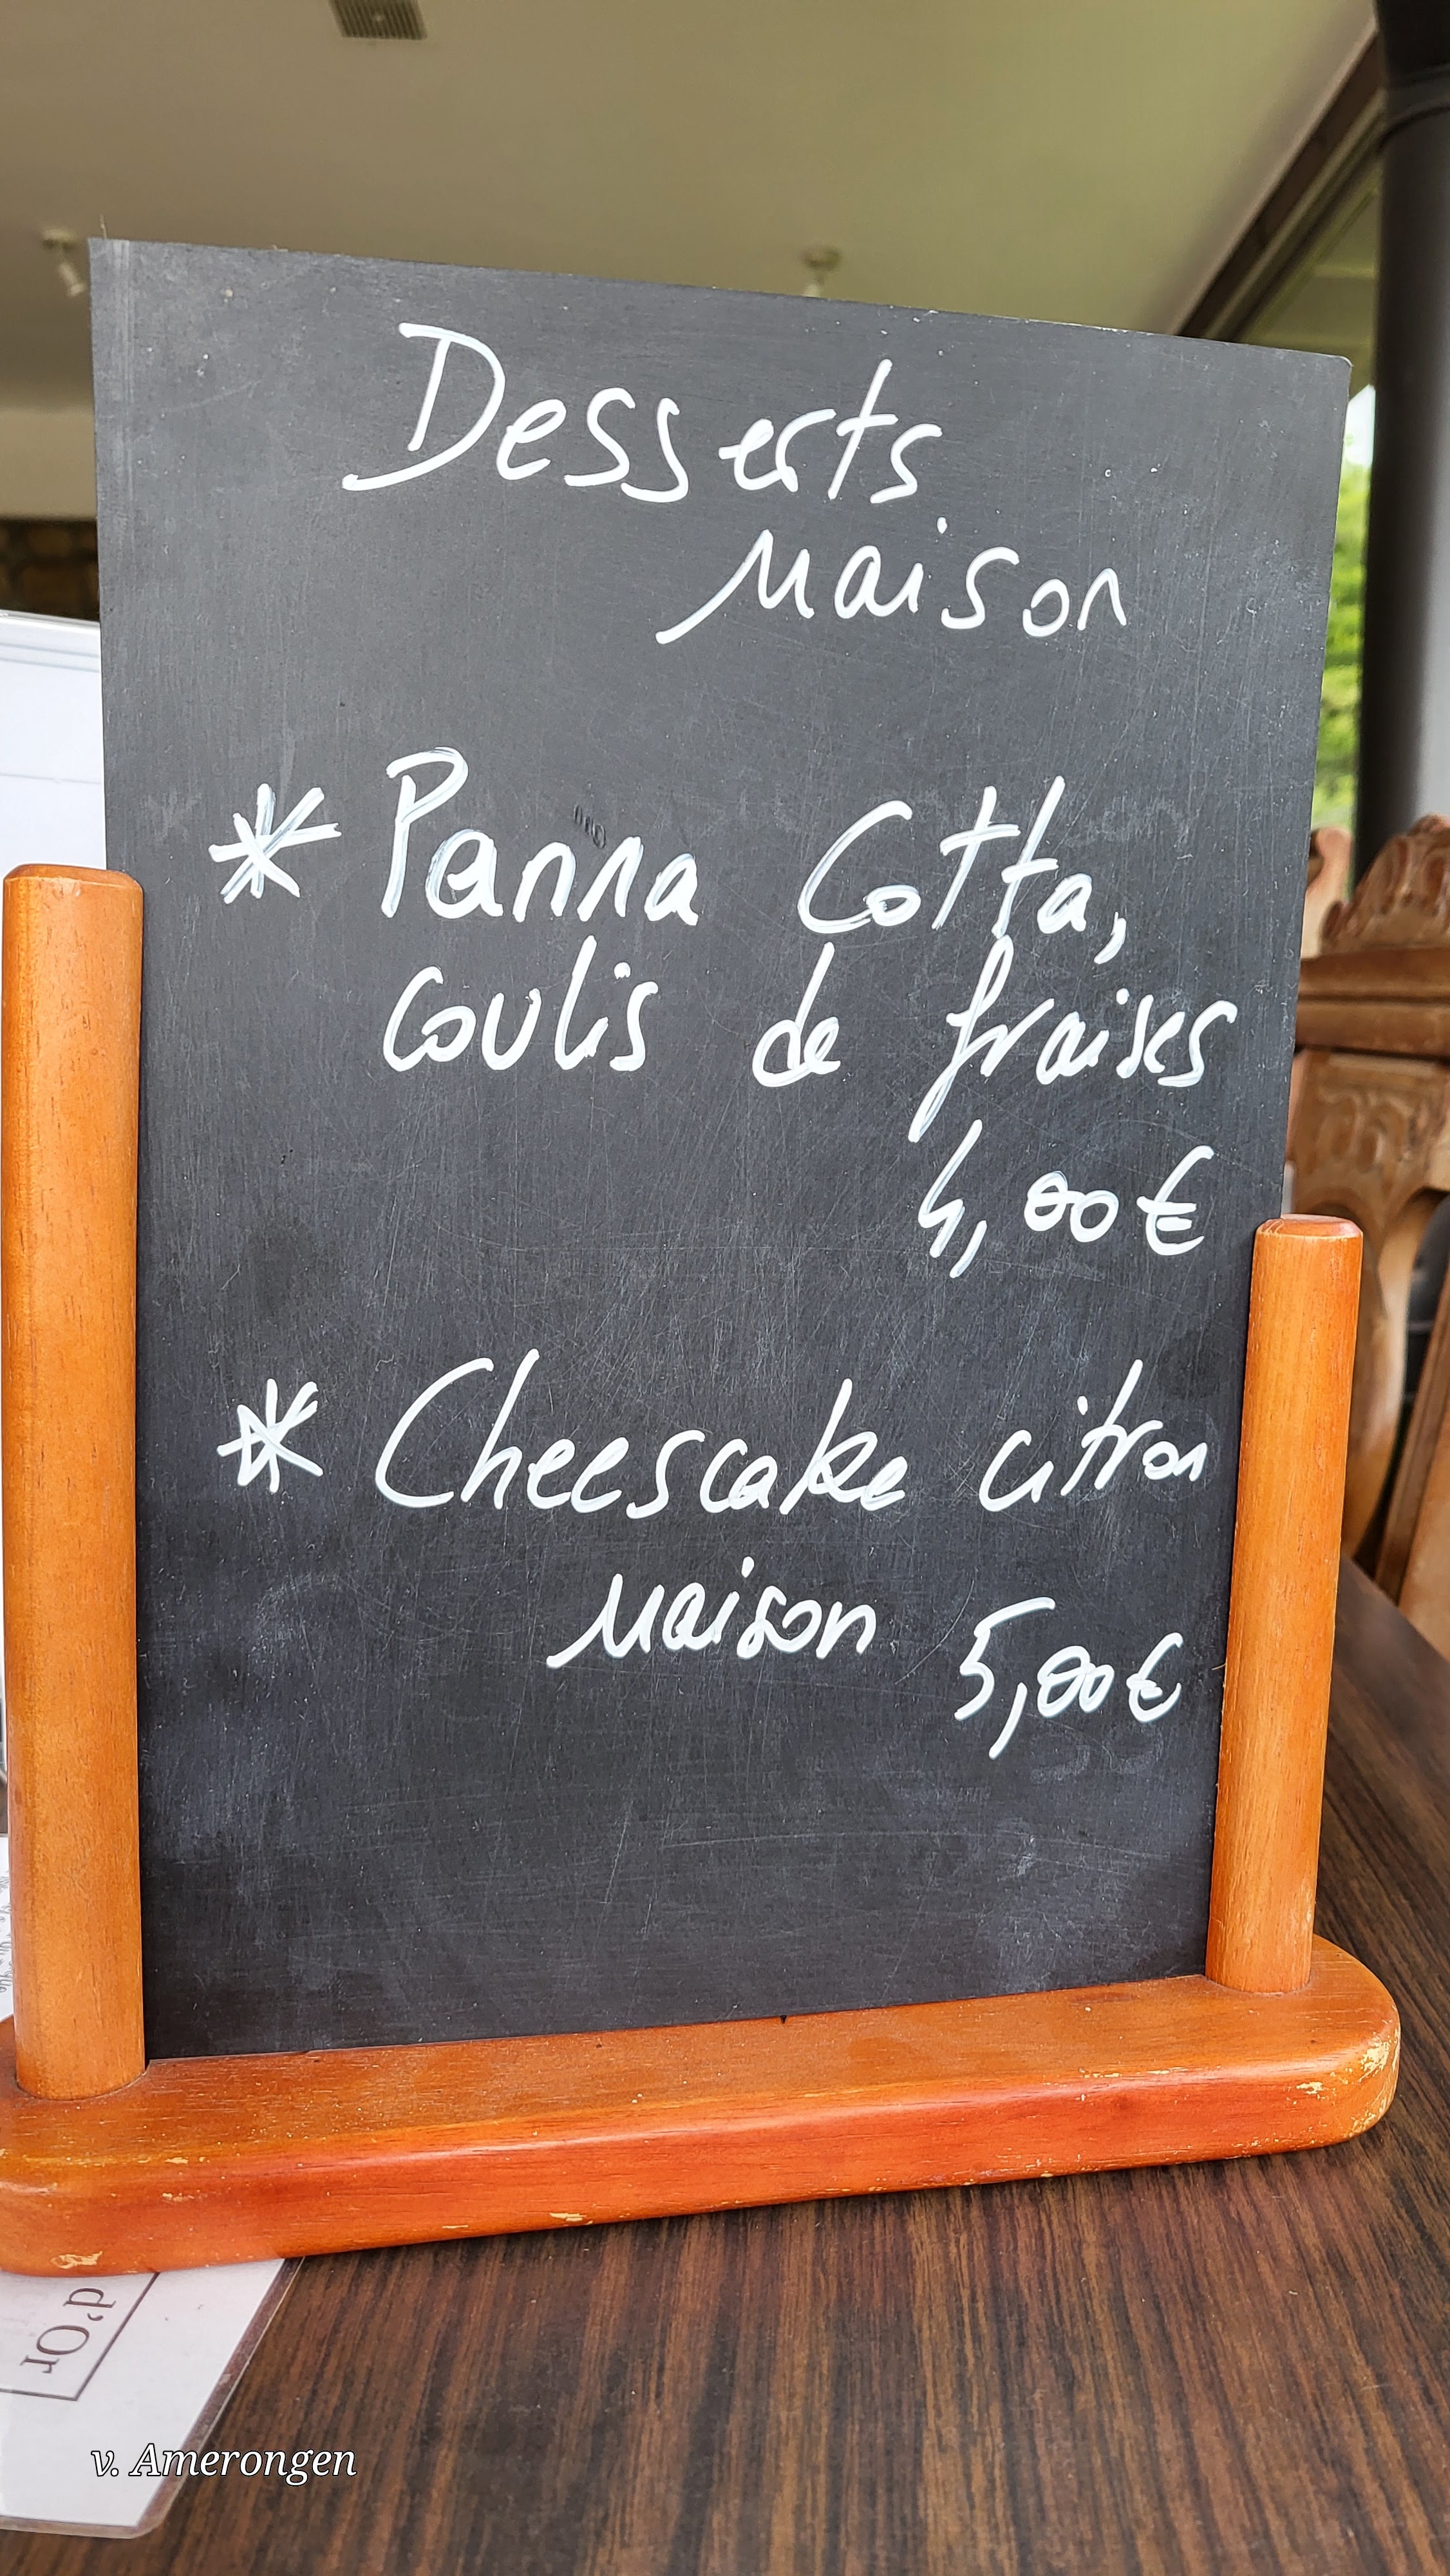 Desserts
Maison
* Panna Cotta,
coulis de fraises
4,00€
* Cheescake citron
Maison 5,00€
d'Or
v. Amerongen